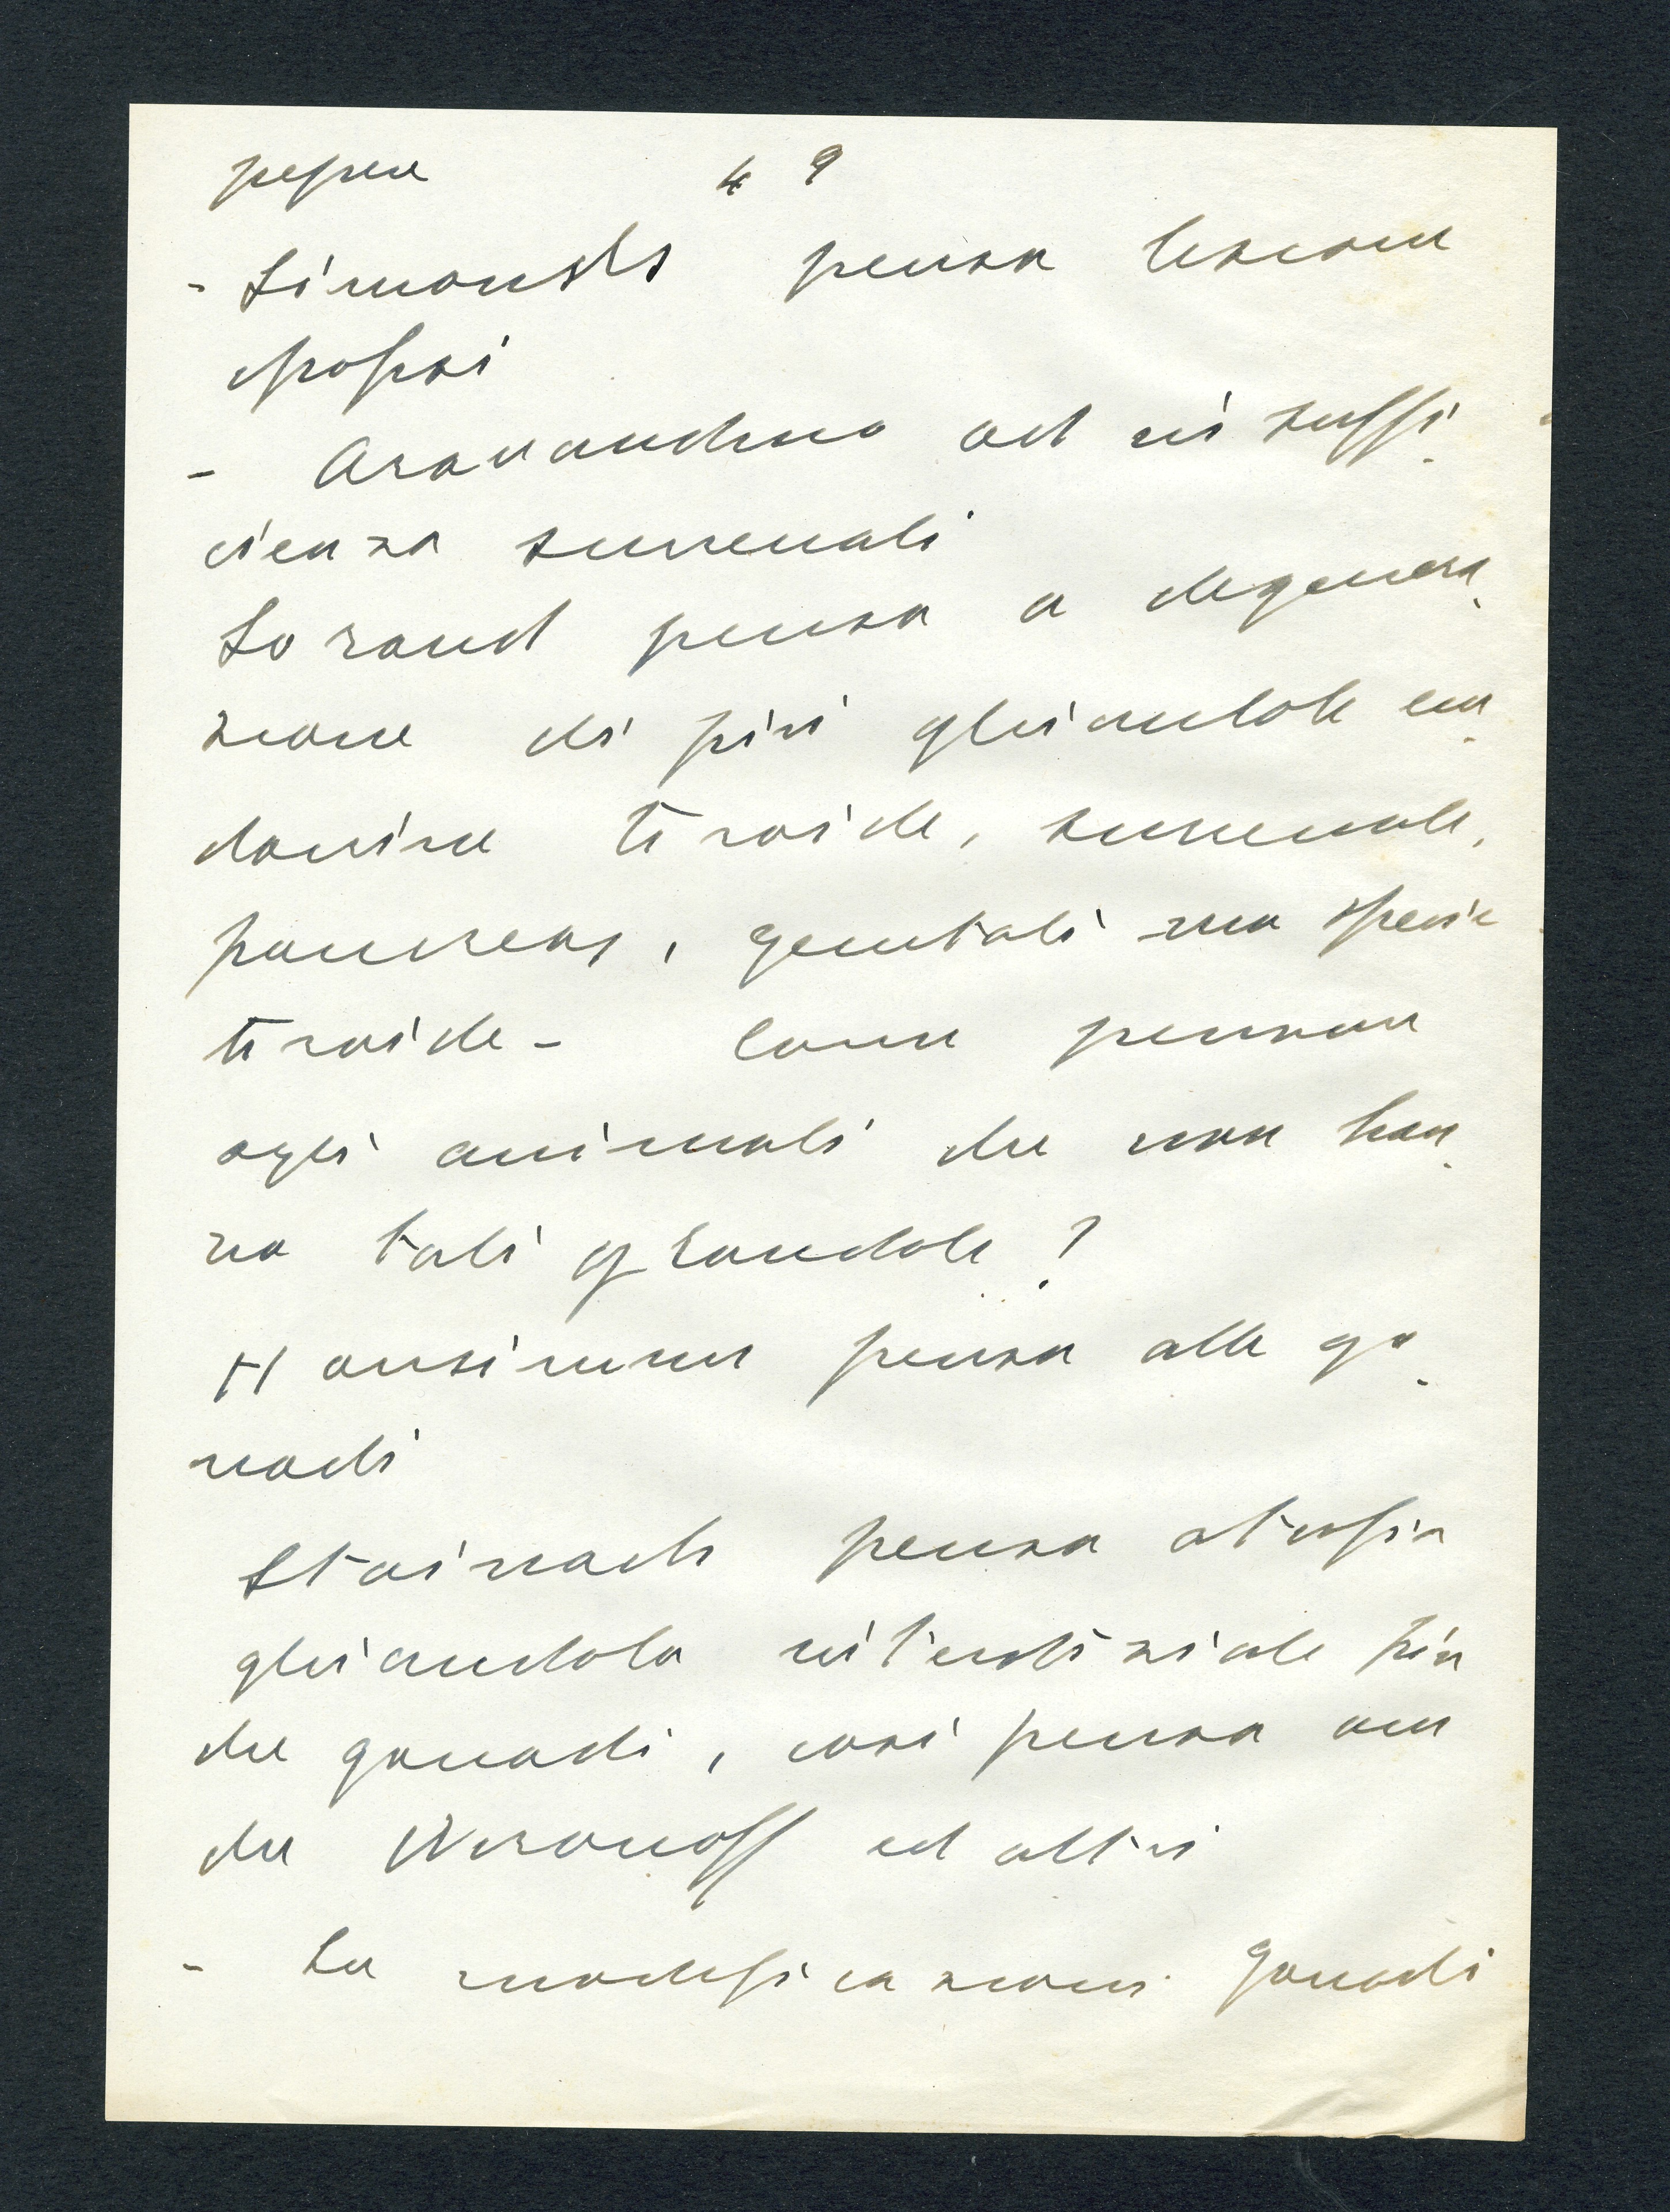 49
- Simonds pensa lesione
ipofisi
- Aravandino ad insuffi
cienza surrenali
Lorand pensa a degenera
zione di più ghiandole en
docrine tiroide, surrenale,
pancreas, genitali ma specie
tiroide - Come pensare
agli animali che non han
no tali glandole?
Hansimmn pensa alle go
nadi
Stainach pensa atrofia
ghiandola interstiziale più
che gonadi, così pensa an
che Woronoff ed altri
- Le modificazioni gonadi